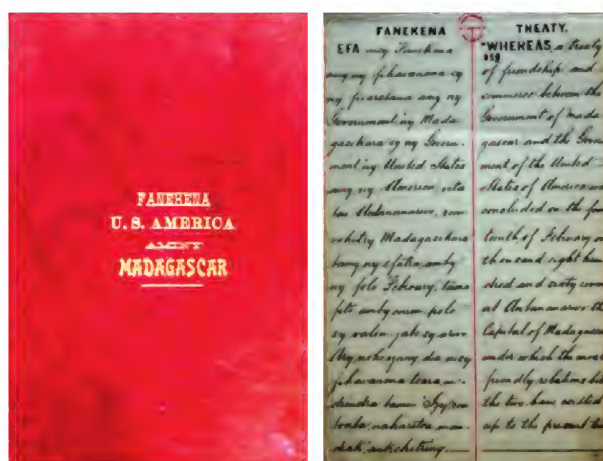 FANEKENA
U. S. AMERICA
AMINY
MADAGASCAR
FANEKENA
EFA misy Fanekena
any ny fihavanana sy
ny
Government ny Mada
gasikara sy ny Govern
ment ny United States
any ny America, vita
tao Antananarivo,
Madagasikara
tamy ny efatra amby
ny folo February,
fito amby enim polo
sy valon jato sy arivo
dia misy
fihavanana
TREATY.
"WHEREAS, a treaty
of friendship and
commerce between the
Government of Mada
gascar and the Govern
ment of the United
States of America was
concluded on the four
teenth of February one
thousand eight hun
dred and sixty seven
at Antananarivo the
Capital of Madagascar
under which the most
friendly relations
the two have existed
up to the present